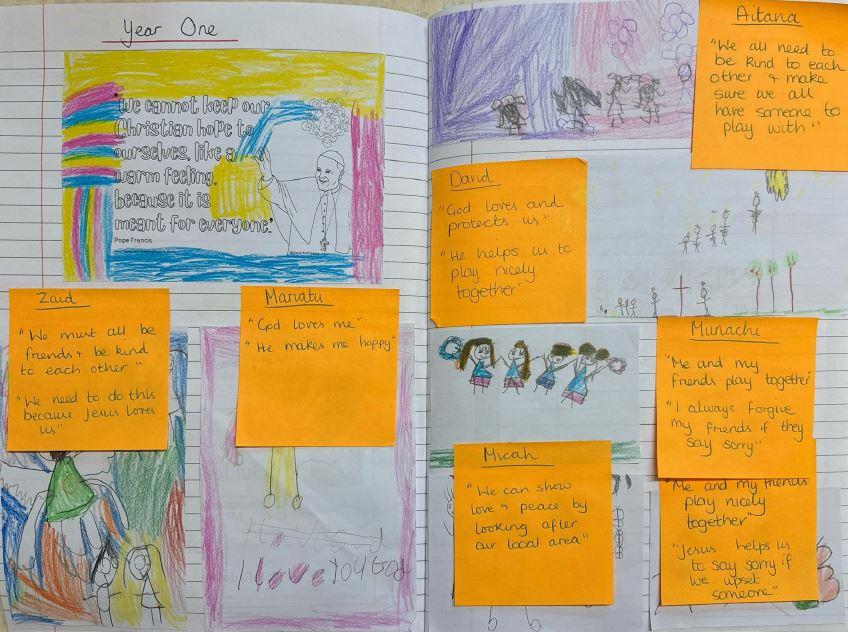 Year One
"We cannot keep our
Christian hope to
ourselves, like a
warm feeling,
because it is
meant for everyone."
Pope Francis
Zaid
"We must all be
friends & be kind
to each other"
"We need to do this
because Jesus loves
us"
Mariatu
"God loves me"
"He makes me happy"
I love you God
Aitana
"We all need to
be kind to each
other & make
sure we all
have someone to
play with"
David
"God loves and
protects us"
"He helps us to
play nicely
together"
Munachi
"Me and my
friends play together"
"I always forgive
my friends if they
say sorry"
Micah
"We can show
love & peace by
looking after
our local area"
"Me and my friends
play nicely
together"
"Jesus helps us
to say sorry if
we upset
someone"